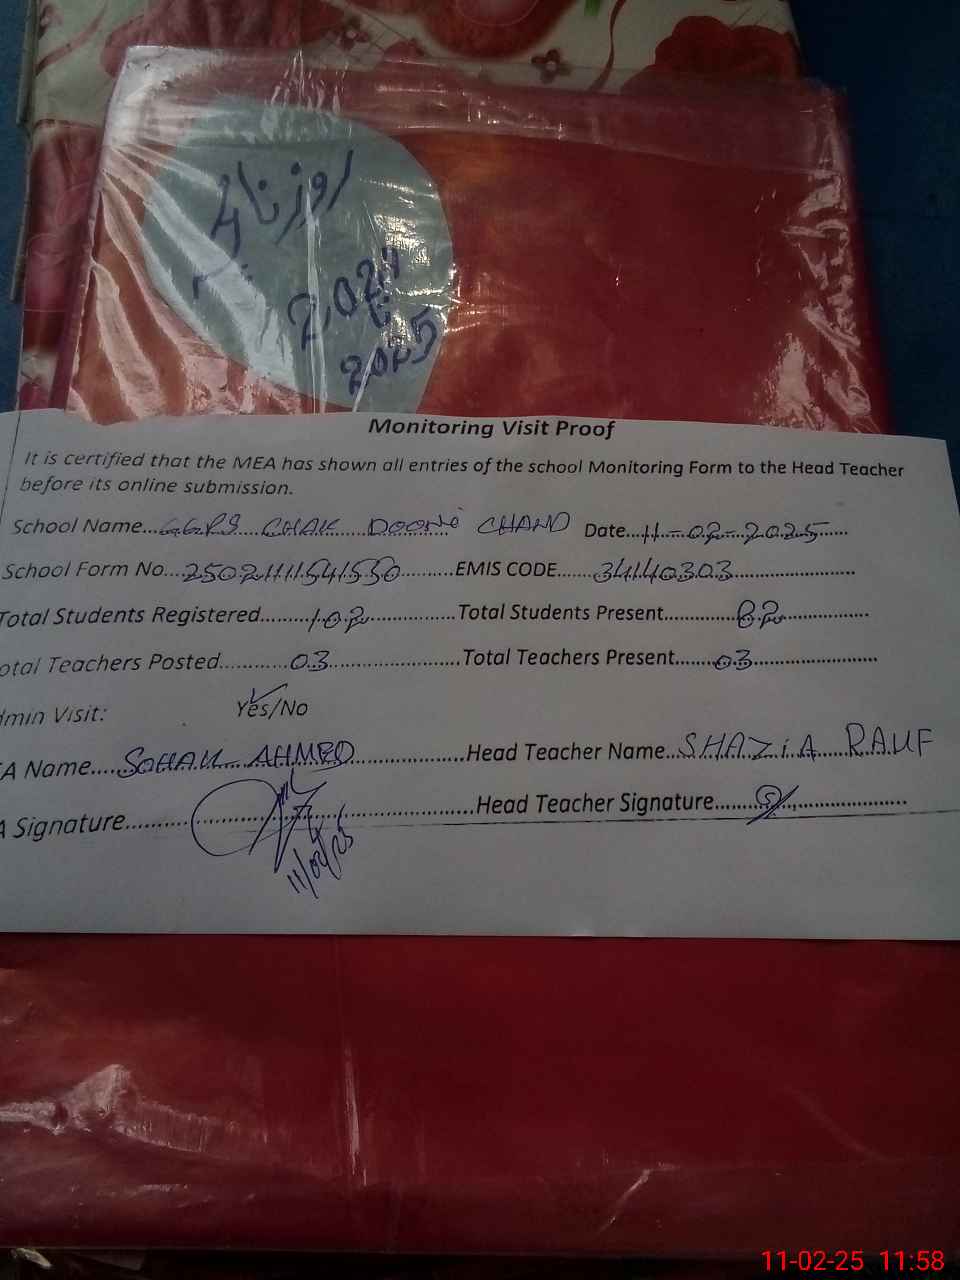 روزنامچہ
2024
تا
2025
Monitoring Visit Proof
It is certified that the MEA has shown all entries of the school Monitoring Form to the Head Teacher
before its online submission.
School Name...GGPS CHAK DOONI CHAND Date....11-02-2025......
School Form No...25021111541550..........EMIS CODE......34140303......................
Total Students Registered........102..................Total Students Present..............82...............
otal Teachers Posted............03.......................Total Teachers Present.......03.......................
dmin Visit: Yes/No
A Name....SOHAIL AHMED....................Head Teacher Name..SHAZIA RAUF
A Signature..........................................Head Teacher Signature................................
11/02/25
11-02-25 11:58